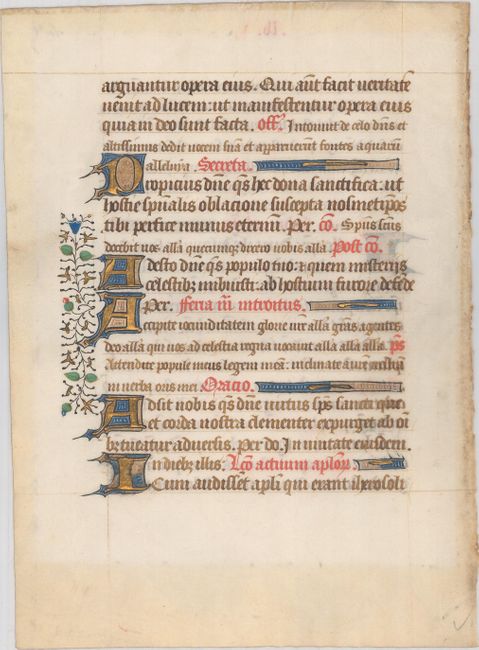 arguantur opera eius. Qui aūt facit veritatē
venit ad lucem: ut manifestentur opera eius
quia in deo sunt facta. off. Intonuit de celo dn̄s et
altissimus dedit vocem suā et apparuerūt fontes aquarū
alleluya. Secreta.
Propicius dn̄e q̄s hec dona sanctifica: ut
hostie sp̄ualis oblacione suscepta nosmetip̄os
tibi perfice munus eternū. Per. cō. Sp̄us sc̄us
docebit vos alla quecumq; dixero vobis alla Post cō.
Adesto dn̄e q̄s populo tuo: et quem misteriis
celestibꝫ imbuisti: ab hostium furore defēde
Per. fferia iii introitus.
Accipite iocunditatem glorie vrē alla grās agentes
deo alla qui vos ad celestia regna vocavit alla alla alla. p̄s
Attendite popule meus legem meā: inclinate aurē
in verba oris mei Oracio.
Adsit nobis q̄s dn̄e virtus sp̄s sancti: que
et corda nostra clementer expurget ab oī
bꝫ tueatur adversis. Per do. In unitate eiusdem.
In diebꝫ illis. Lcō actuum aplōꝝ
Cum audisset apli qui erant iherosoli